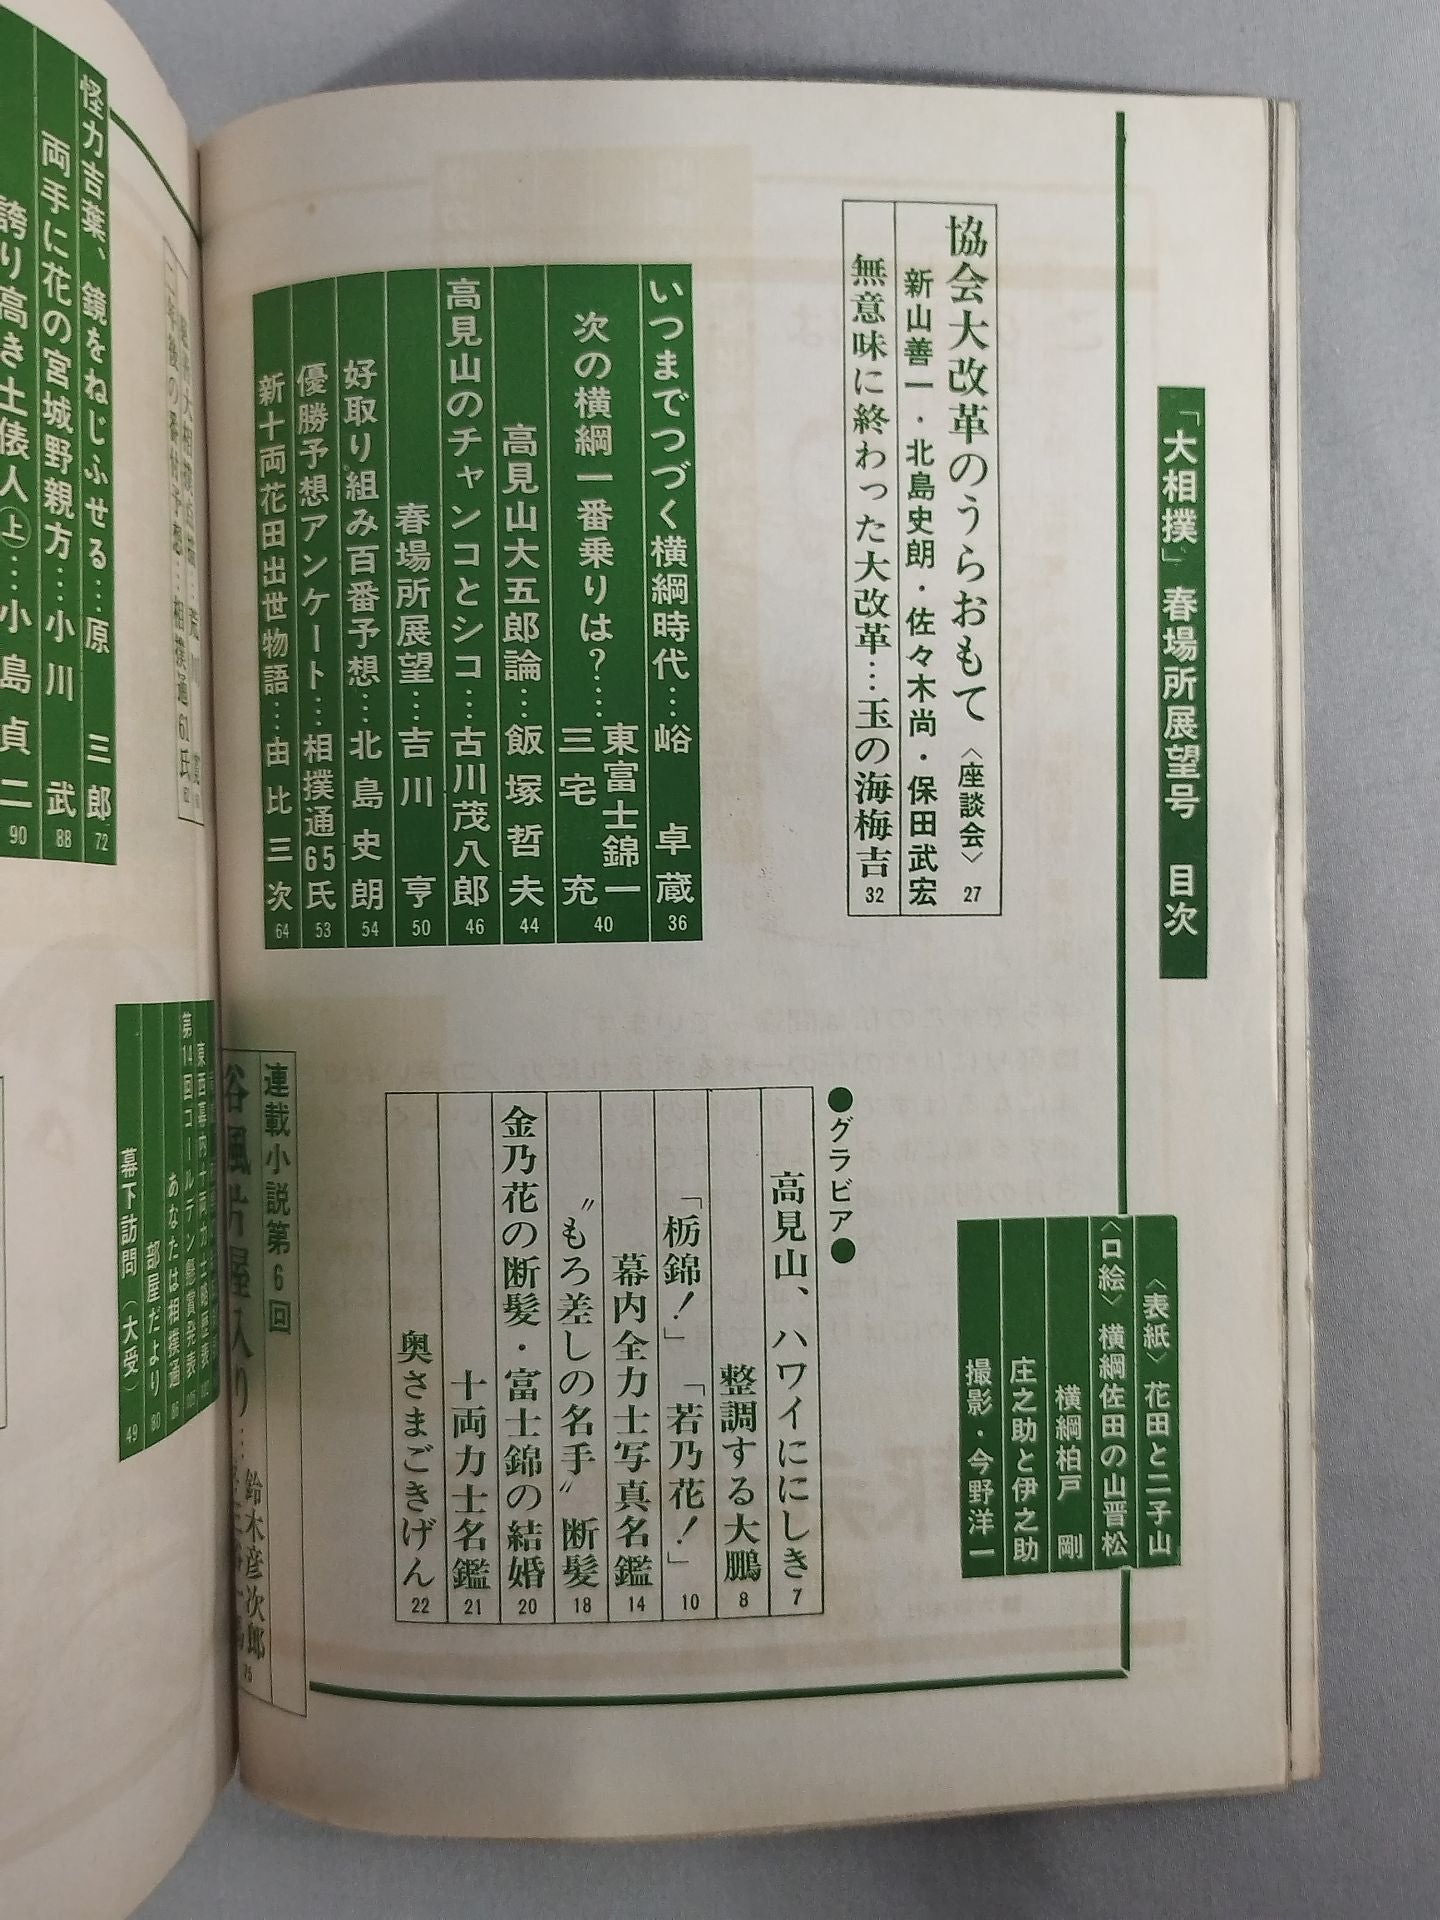 「大相撲」春場所展望号　目次
〈表紙〉花田と二子山
〈口絵〉横綱佐田の山晋松
横綱柏戸　剛
庄之助と伊之助
撮影・今野洋一
協会大改革のうらおもて〈座談会〉27
新山善一・北島史朗・佐々木尚・保田武宏
無意味に終わった大改革…玉の海梅吉 32
いつまでつづく横綱時代…峪　卓蔵 36
次の横綱一番乗りは？…東富士錦一
三宅　充 40
高見山大五郎論…飯塚哲夫 44
高見山のチャンコとシコ…古川茂八郎 46
春場所展望…吉川　亨 50
好取り組み百番予想…北島史朗 54
優勝予想アンケート…相撲通65氏 53
新十両花田出世物語…由比三次 64
●グラビア●
高見山、ハワイににしき 7
整調する大鵬 8
「栃錦！」「若乃花！」 10
幕内全力士写真名鑑 14
〝もろ差しの名手〟断髪 18
金乃花の断髪・富士錦の結婚 20
十両力士名鑑 21
奥さまごきげん 22
連載小説第6回
鈴木彦次郎
75
怪力吉葉、鏡をねじふせる…原　三郎 72
両手に花の宮城野親方…小川　武 88
誇り高き土俵人㊤…小島貞二 90
相撲通61氏
東西幕内十両力士略歴表
第14回ゴールデン懸賞発表 105
あなたは相撲通 86
部屋だより 80
幕下訪問（大受）49